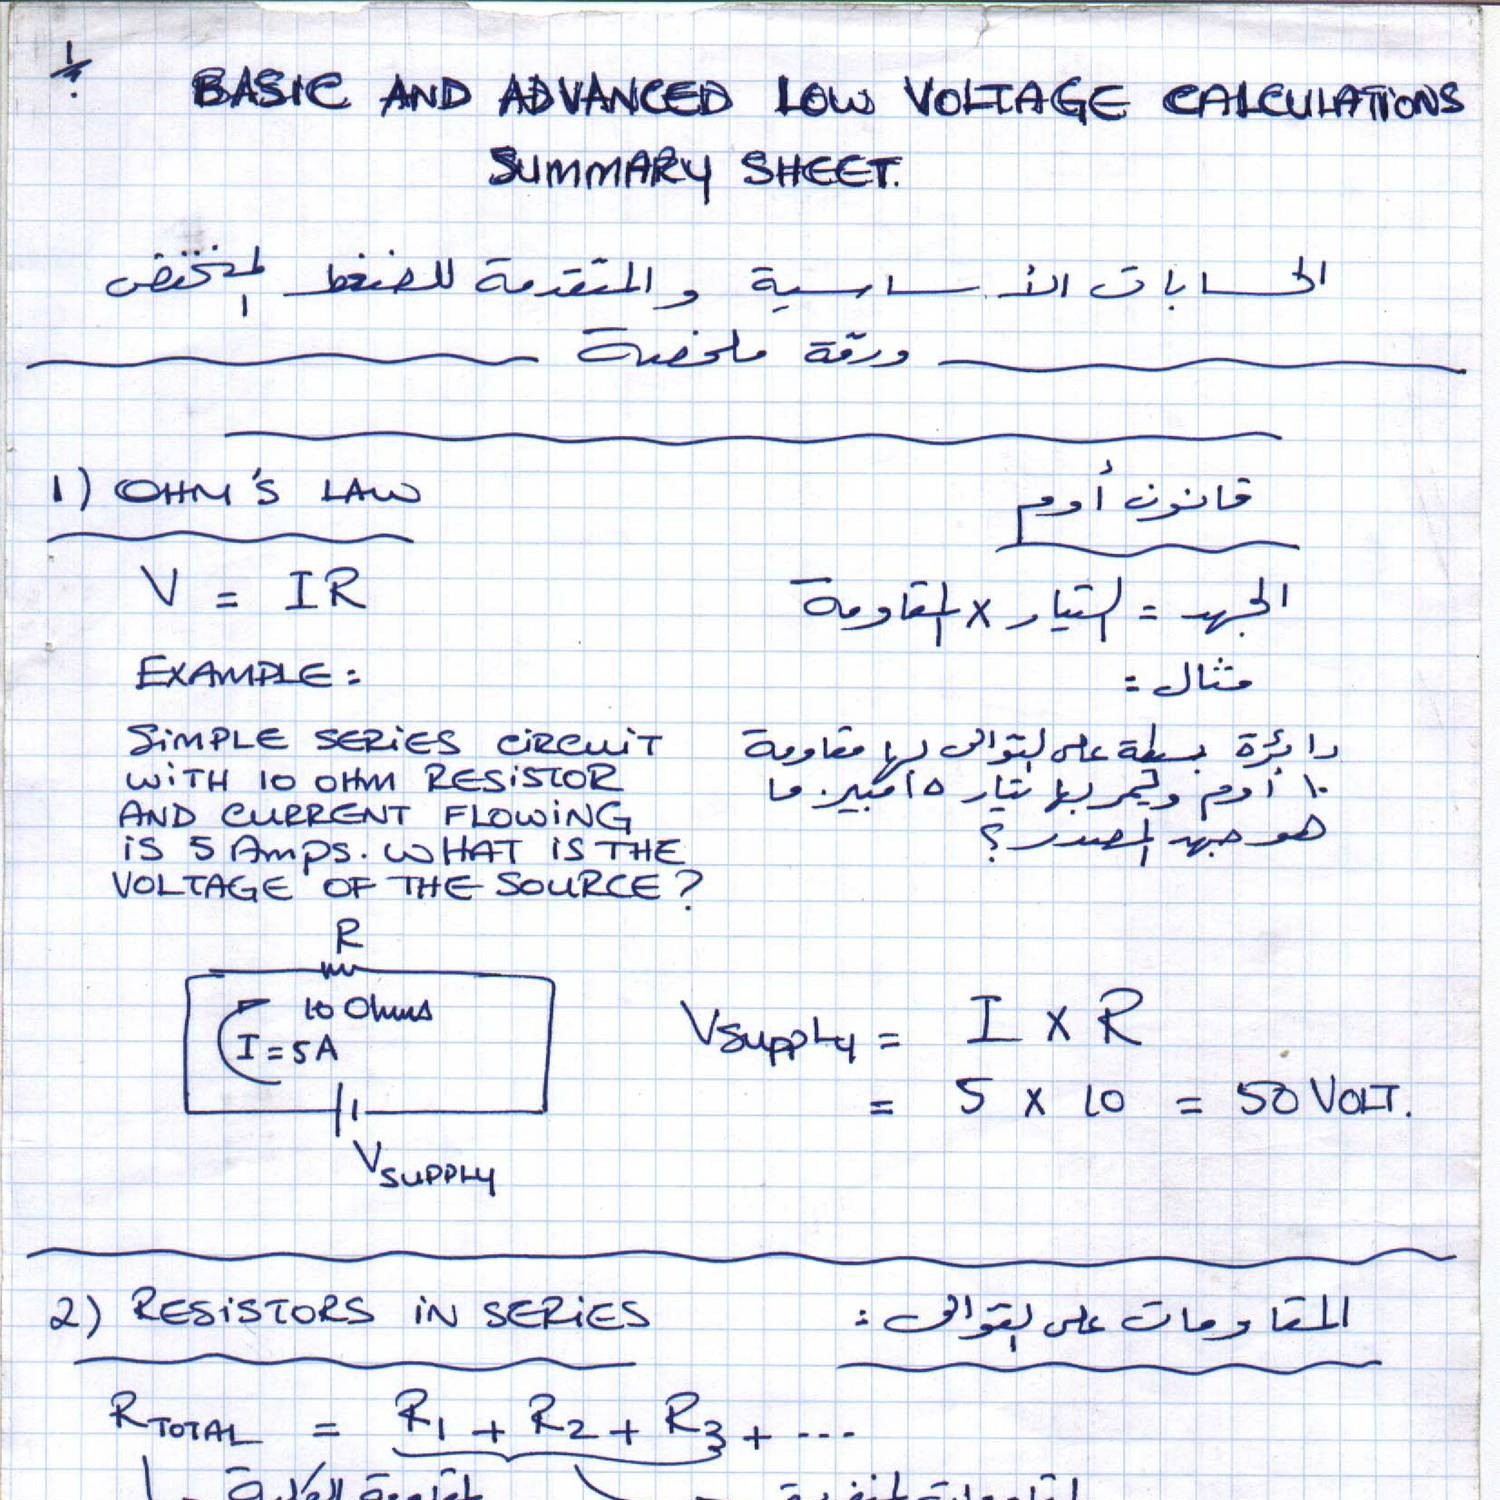 1/
BASIC AND ADVANCED LOW VOLTAGE CALCULATIONS
SUMMARY SHEET.
الحسابات الأساسية والمتقدمة للضغط المنخفض
ورقة ملخصة
1) OHM'S LAW
قانون أوم
V = IR
الجهد = التيار x المقاومة
EXAMPLE:
مثال :
SIMPLE SERIES CIRCUIT
WITH 10 OHM RESISTOR
AND CURRENT FLOWING
IS 5 AMPS. WHAT IS THE
VOLTAGE OF THE SOURCE?
دائرة بسيطة على التوالى لها مقاومة
١٠ أوم ويمر بها تيار ٥ أمبير. ما
هو جهد المصدر؟
R
10 Ohms
I = 5A
VSUPPLY
VSUPPLY = I x R
= 5 x 10 = 50 VOLT.
2) RESISTORS IN SERIES
المقاومات على التوالى :
RTOTAL = R1 + R2 + R3 + ...
المقاومة الكلية